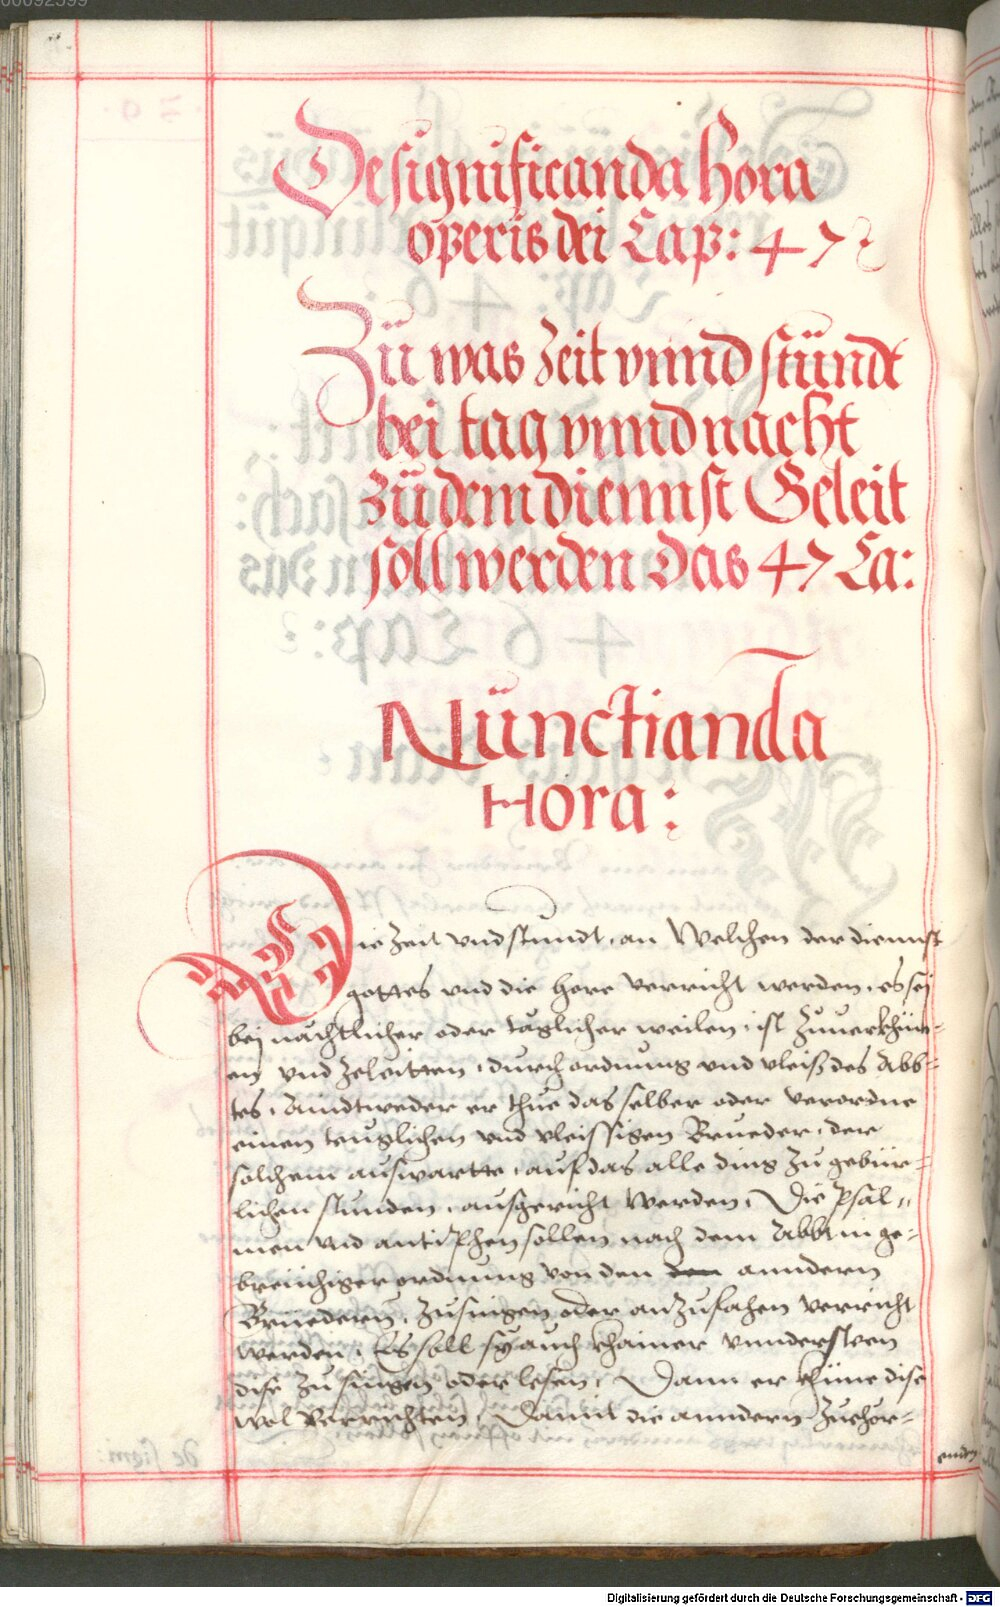 De significanda hora
operis dei Cap: 47
Zü was Zeit vnnd stündt
bei tag vnnd nacht
zü dem diennst Geleit
soll werden das 47 Ca:
Nünctianda
Hora:
Die Zeit vnd stundt, an Welchen der diennst
gottes vnd die hore verricht werden, es sej
bej nächtlicher oder täglicher weilen, ist Zuuerkhün-
en vnd Zeleitten, durch ordnung vnd vleiß des Abb-
tes, Aindtweder er thue das selber oder verordne
einen tauglichen vnd vleissigen Brueder, der
solchem auswartte, auf das alle ding Zu gebür-
lichen stunden, ausgericht werden, Die Psal-
men vnd antiphen sollen nach dem Abbt in ge-
breüchiger ordnung von den anndern
Brüedern, Zusingen oder anzufahen verricht
werden, Es soll sy auch khainer vnndersteen
dise Zu singen oder lesen, Dann er khüne dise
wol Verrichten, Damit die anndern Zuehör-
enden
Digitalisierung gefördert durch die Deutsche Forschungsgemeinschaft - DFG